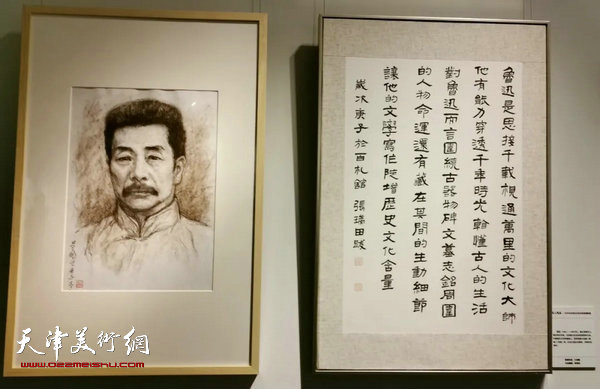 魯迅是思接千載視通萬里的文化大師
他有能力穿透千年時光讀懂古人的生活
對魯迅而言圍繞古器物碑文墓志銘周圍
的人物命運還有藏在其間的生動細節
讓他的文學寫作陡增歷史文化含量
歲次庚子於百札館 張瑞田跋
天津美術網
www.022meishu.com